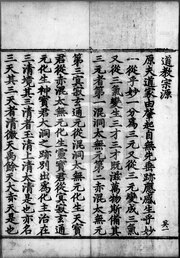 道教宗源
原夫道家由肇起自無先垂跡應感生乎妙
一從乎妙一分為三元又從三元變成三氣
又從三氣變生三才三才既滋萬物斯備其
三元者第一混洞太無元第二赤混太無元
第三冥寂玄通元從混洞太無元化生天寶
君從赤混太無元化生靈寶君從冥寂玄通
元化生神寶君大洞之跡別出為化主治在
三清境其三清境者玉清上清太清是也亦名
三天其三天者清微天禹餘天大赤天是也